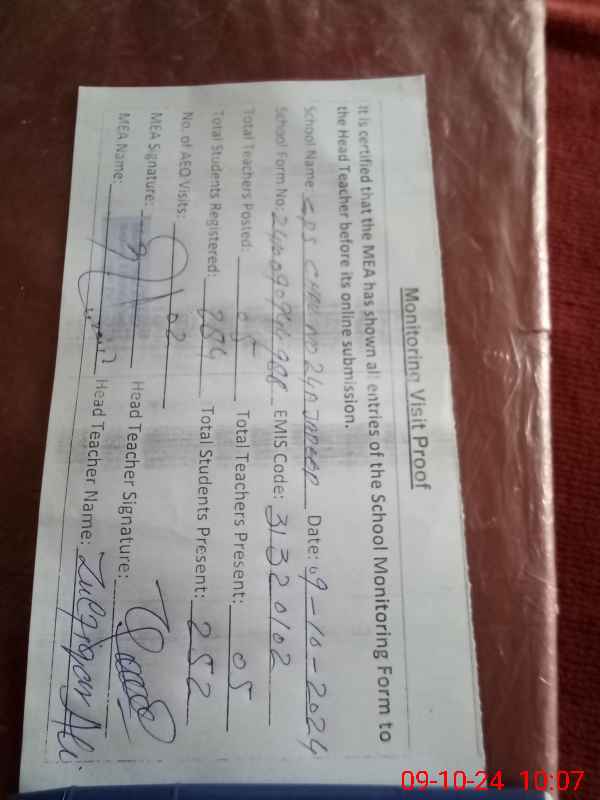 Monitoring Visit Proof
It is certified that the MEA has shown all entries of the School Monitoring Form to
the Head Teacher before its online submission.
School Name: GPS Date: 09-10-2024
School Form No: EMIS Code: 31320102
Total Teachers Posted: 05 Total Teachers Present: 05
Total Students Registered: 284 Total Students Present: 252
No. of AEO Visits: 02
MEA Signature: Head Teacher Signature:
MEA Name: Head Teacher Name: Zulfiqar Ali
09-10-24 10:07